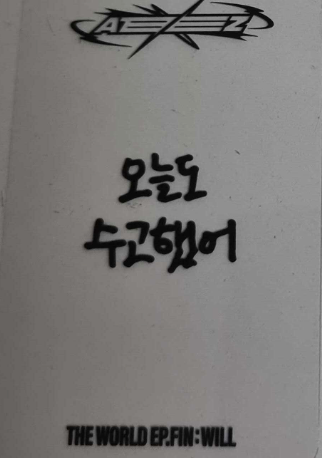 ATEEZ
오늘도
수고했어
THE WORLD EP.FIN : WILL